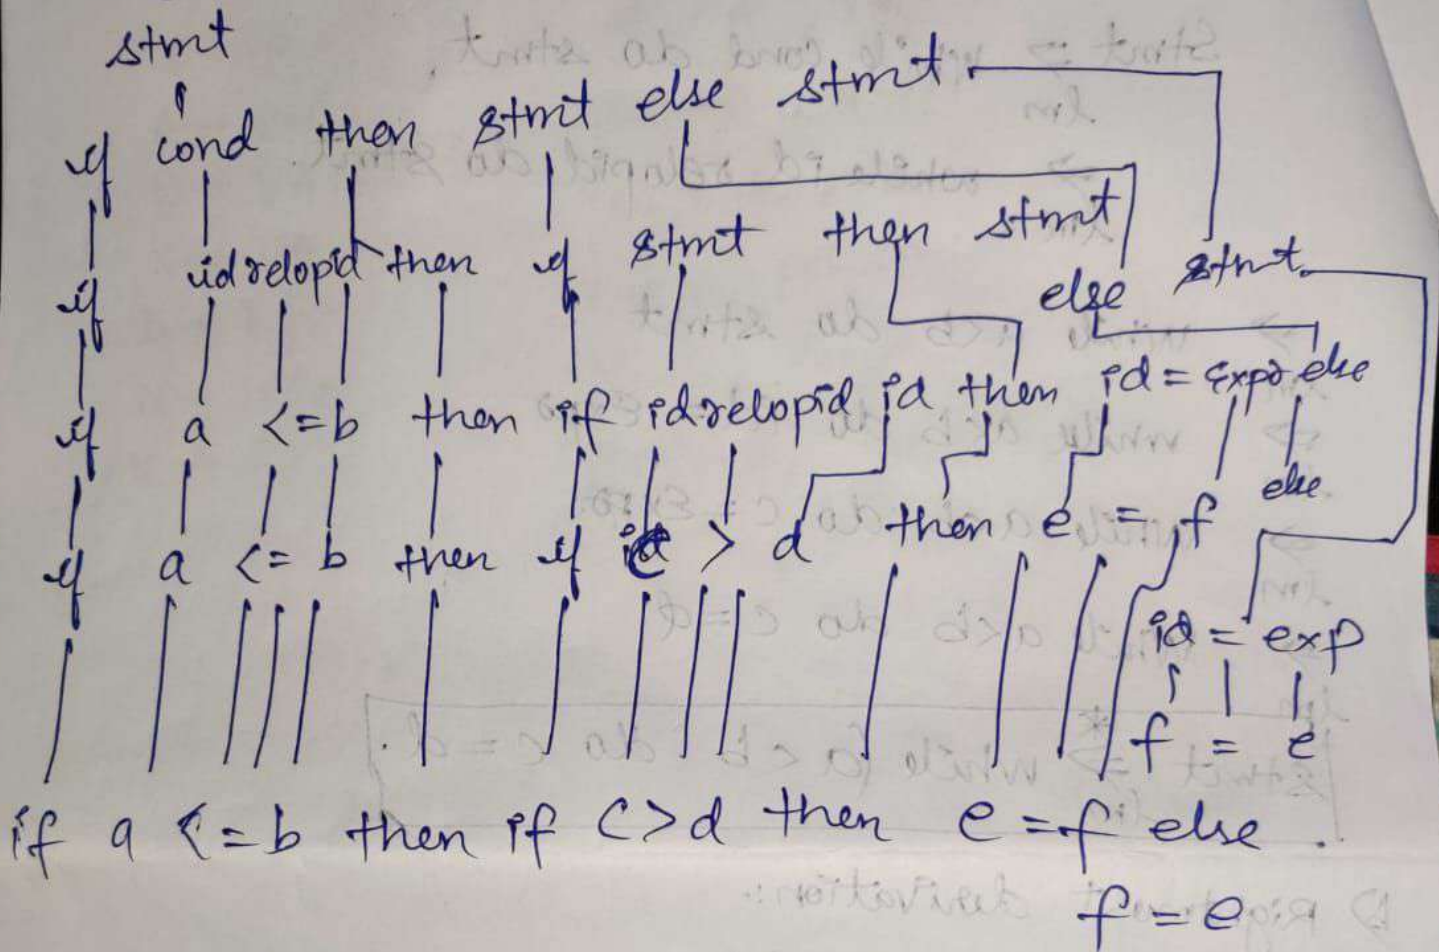 stmt
if cond then stmt else stmt
if id relop id then if stmt then stmt else stmt
if a <= b then if id relop id id then id = expr else
if a <= b then if c > d then e = f else
id = exp
f = e
if a <= b then if c>d then e = f else
f = e